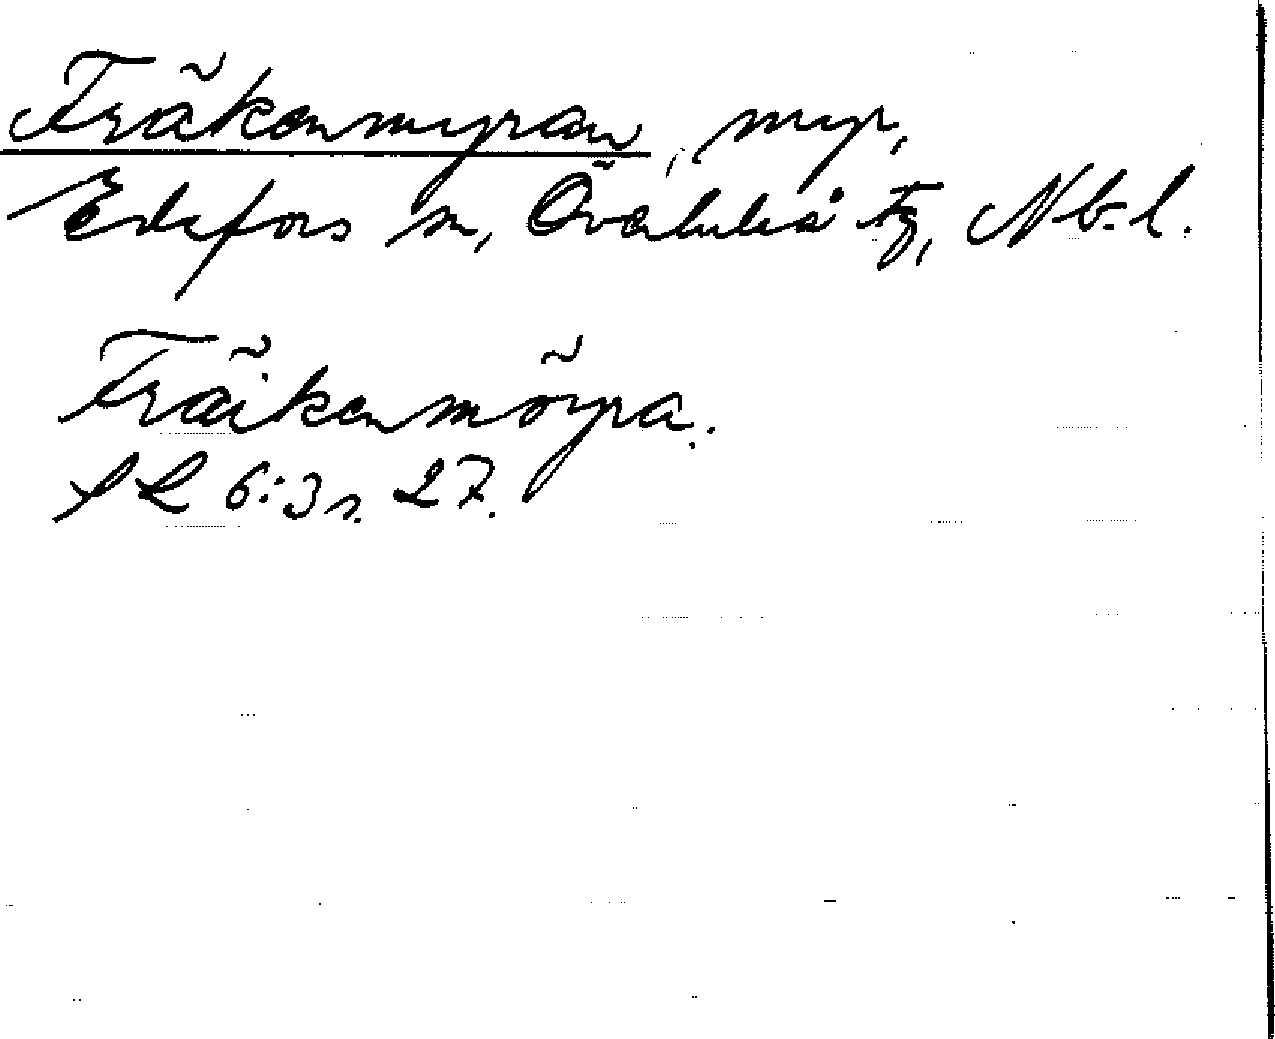 Fräkenmyran, myr,
Edefors sn, Överluleå tg, Nb. l.
Fräikenmöyra.
SL 6:3 s. 27.